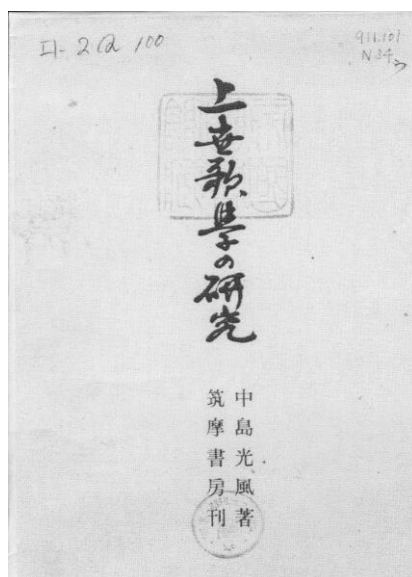 II-2@100
911.101
N34
上世歌學の研究
中島光風著
筑摩書房刊